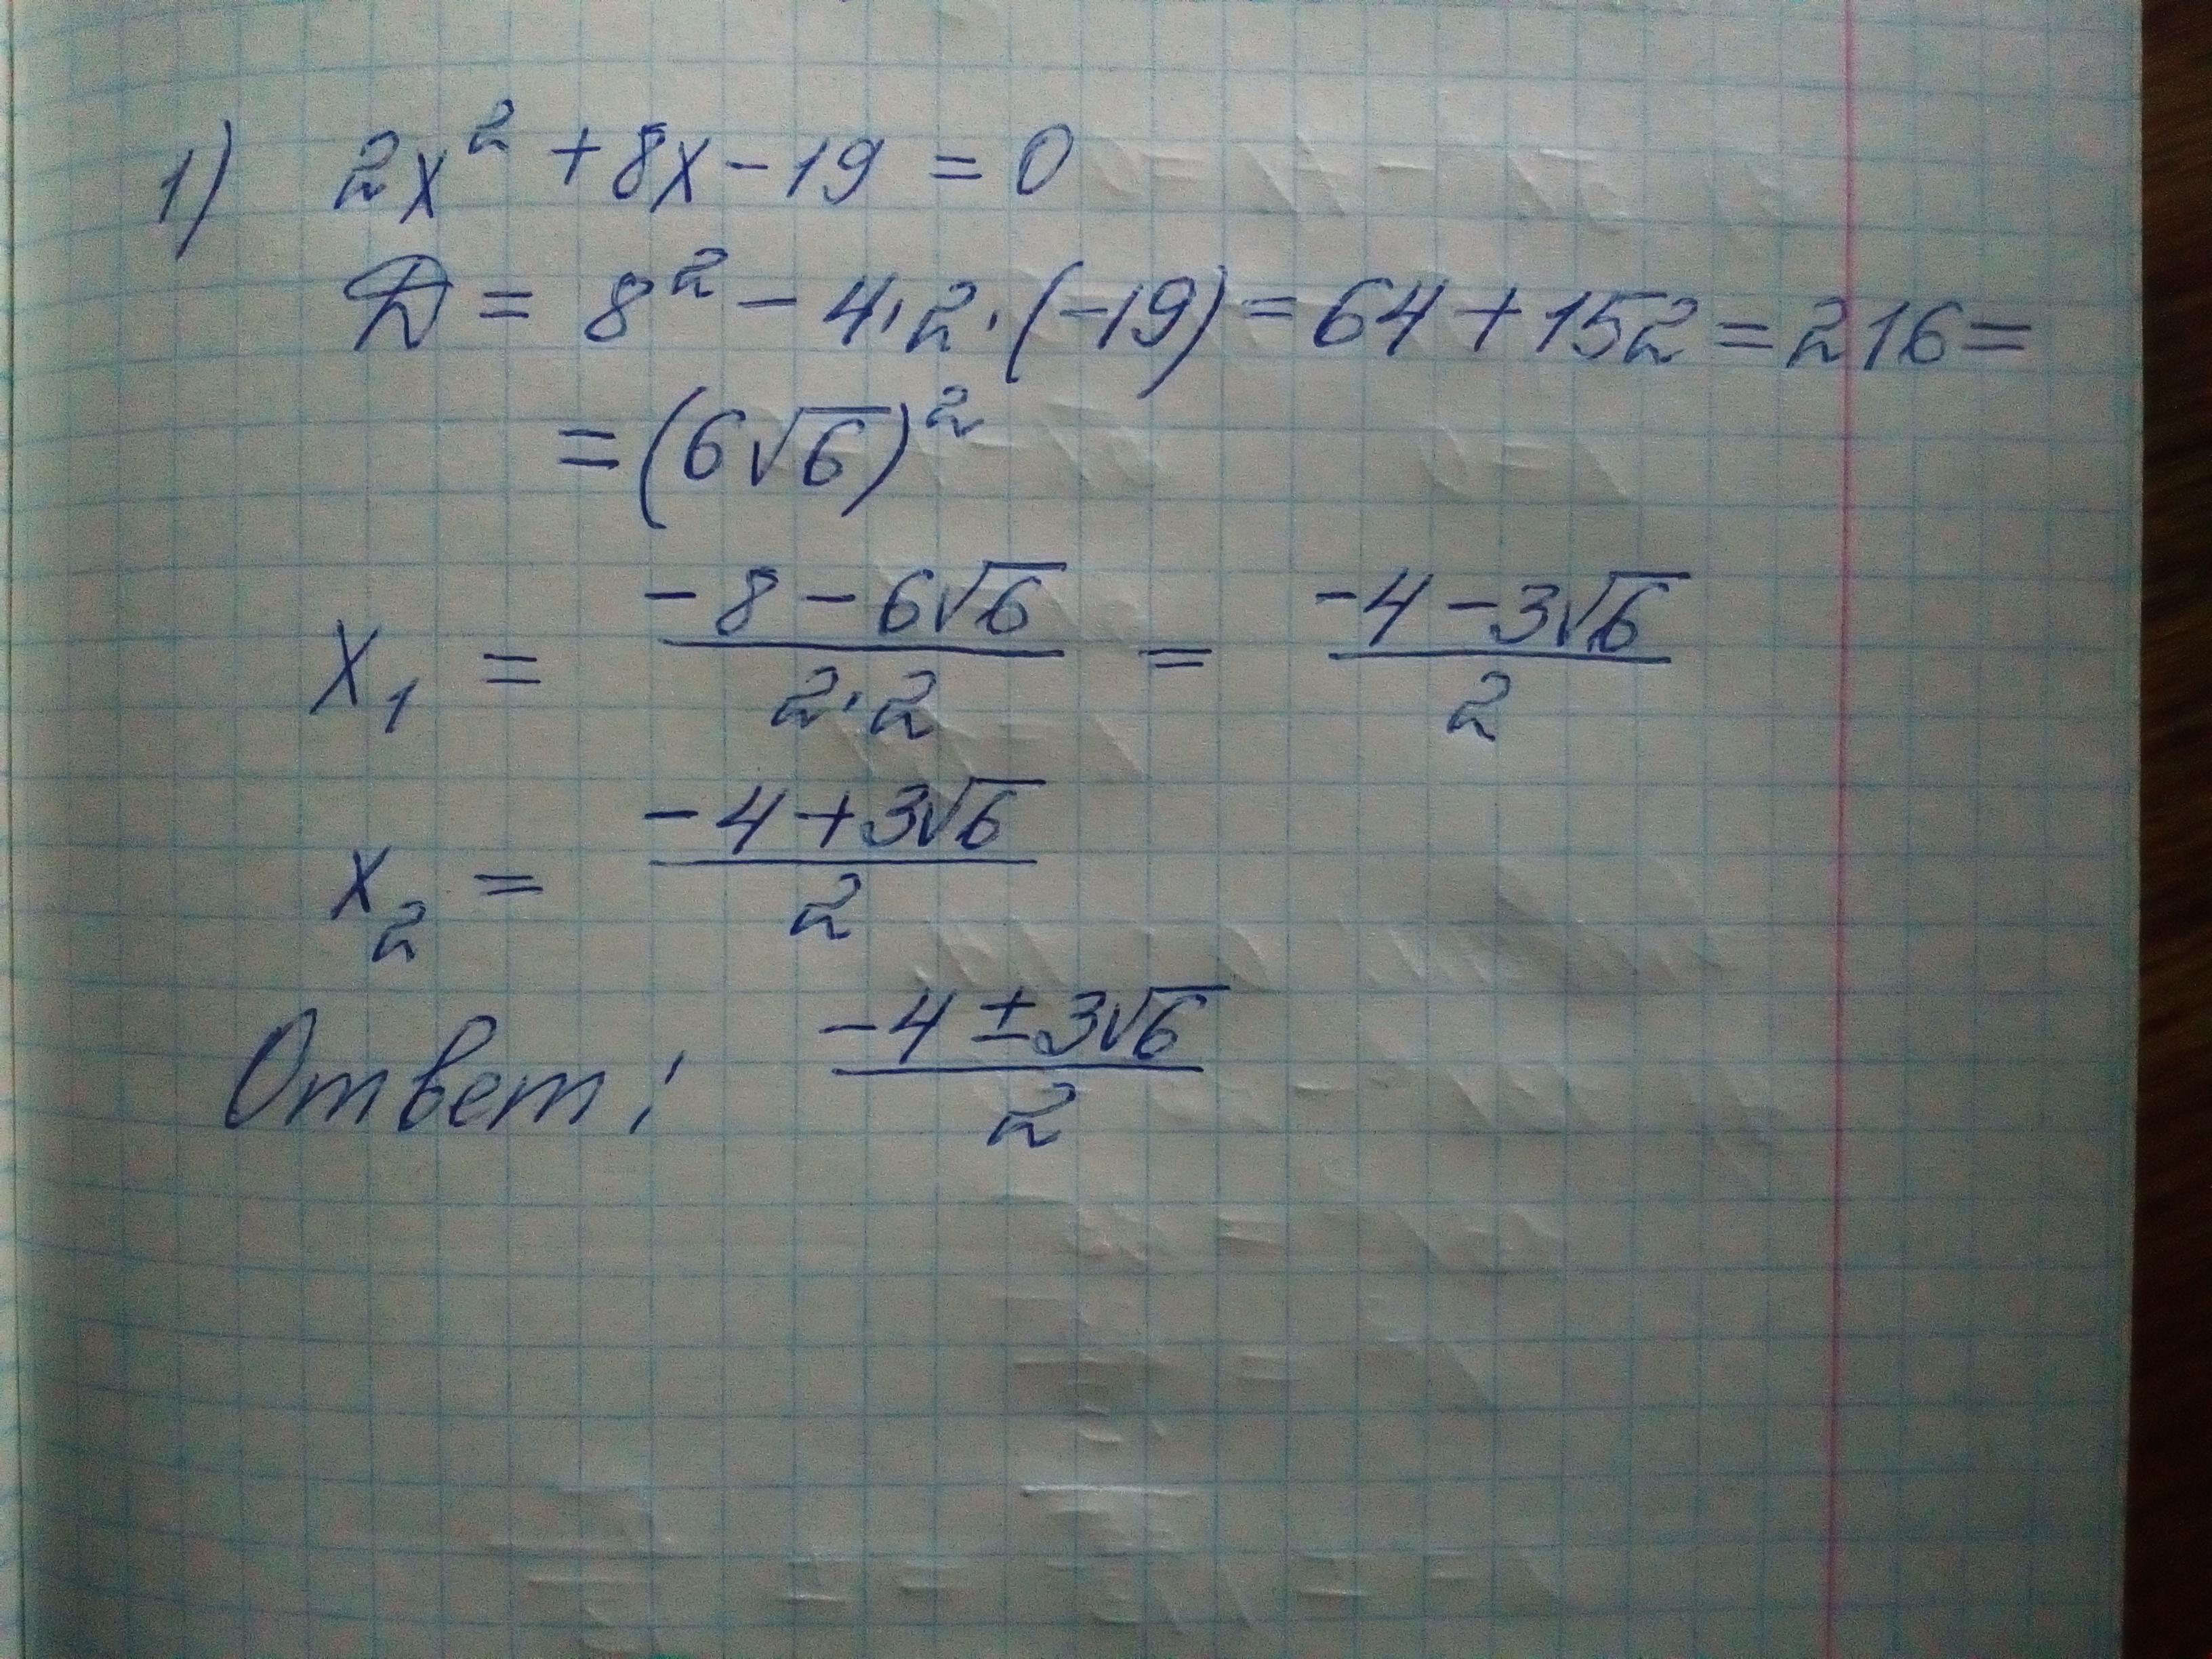 1) 2x² + 8x - 19 = 0
D = 8² - 4·2·(-19) = 64 + 152 = 216 =
= (6√6)²
x₁ = (-8 - 6√6)/(2·2) = (-4 - 3√6)/2
x₂ = (-4 + 3√6)/2
Ответ: (-4 ± 3√6)/2